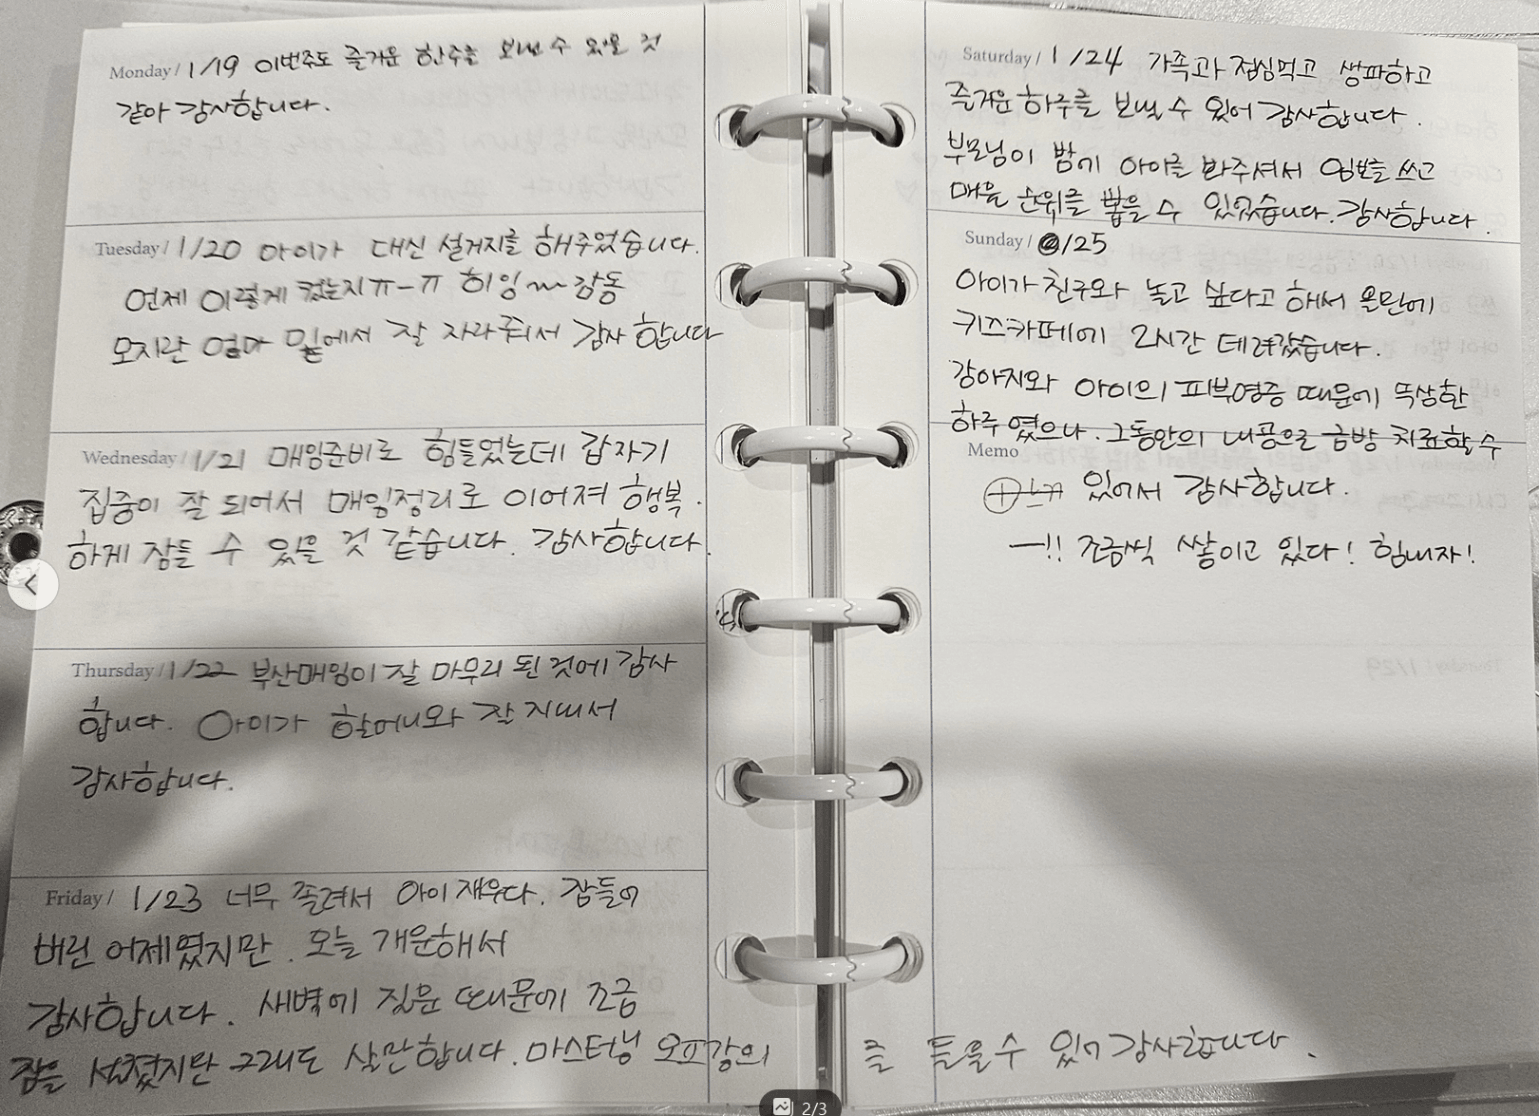 Monday / 1/19 이번주도 즐거운 한주를 보낼 수 있을 것
같아 감사합니다.
Tuesday / 1/20 아이가 대신 설거지를 해주었습니다.
언제 이렇게 컸는지ㅠ-ㅠ 히잉~ 감동
모지란 엄마 밑에서 잘 자라줘서 감사합니다
Wednesday / 1/21 매임준비로 힘들었는데 갑자기
집중이 잘 되어서 매임정리로 이어져 행복.
하게 잠들 수 있을 것 같습니다. 감사합니다.
Thursday / 1/22 부산매임이 잘 마무리 된 것에 감사
합니다. 아이가 할머니와 잘 지내서
감사합니다.
Friday / 1/23 너무 졸려서 아이 재우다. 잠들어
버린 어제였지만. 오늘 개운해서
감사합니다. 새벽에 짐운 때문에 조금
잠을 설쳤지만 그래도 살만합니다. 마스터님 오프강의 를 들을 수 있어 감사합니다.
Saturday / 1/24 가족과 점심먹고 생파하고
즐거운 하루를 보낼 수 있어 감사합니다.
부모님이 밤에 아이를 봐주셔서 임보를 쓰고
매물 순위를 뽑을 수 있었습니다. 감사합니다.
Sunday / /25
아이가 친구와 놀고 싶다고 해서 올만에
키즈카페에 2시간 데려갔습니다.
강아지와 아이의 피부염증 때문에 뚝상한
하루였으나. 그동안의 내공으로 금방 치료할 수
Memo
있어서 감사합니다.
―!! 조금씩 쌓이고 있다! 힘내자!
2/3